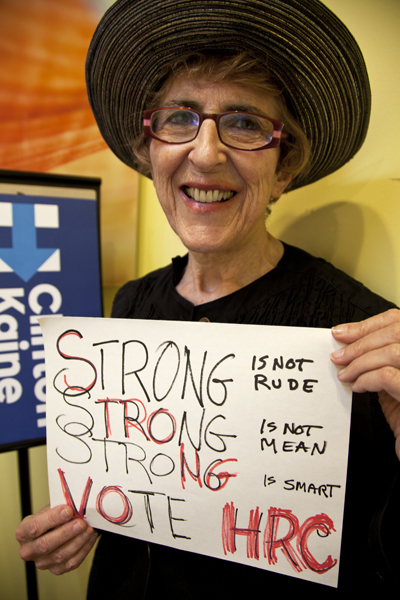 STRONG IS NOT RUDE
STRONG IS NOT MEAN
STRONG IS SMART
VOTE HRC
Clinton
Kaine